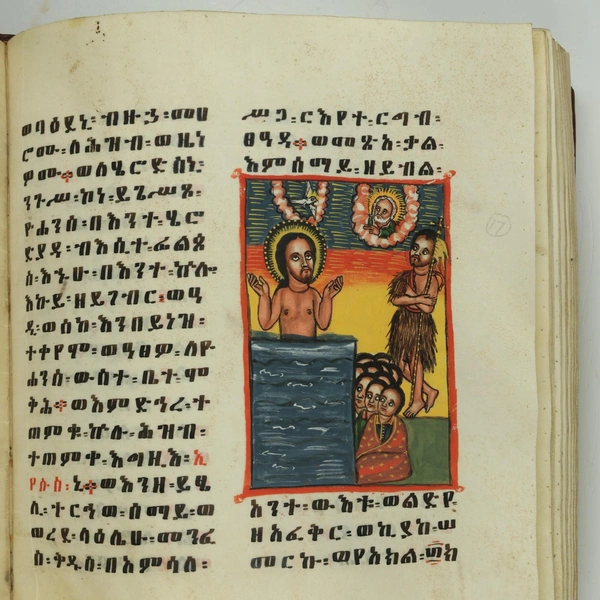 ወባዕደኒ፡ ብዙኃ፡ መሀ
ሮሙ፡ ለሕዝብ፡ ወዜነ
ዎሙ። ወለሄሮድስኒ፡
ንጉሥ፡ ኮነ፡ ይጌሥጾ፡
ዮሐንስ፡ በእንተ፡ ሄሮ
ድያዳ፡ ብእሲተ፡ ፊልጶ
ስ፡ እኁሁ፡ በእንተ፡ ኵሉ
እኩይ፡ ዘይገብር። ወዓ
ዲ፡ ወሰከ፡ እንበይነዝ፡
ተቀየሞ፡ ወዓፀዎ፡ ለዮ
ሐንስ፡ ውስተ፡ ቤተ፡ ሞ
ቅሕ። ወእምድኅረ፡ ተ
ጠምቁ፡ ኵሉ፡ ሕዝብ፡
ተጠምቀ፡ እግዚእ፡ ኢ
የሱስ፡ ኒ። ወእንዘ፡ ይጼ
ሊ፡ ተርኅወ፡ ሰማይ፡ ወ
ወረደ፡ ላዕሌሁ፡ መንፈ
ስ፡ ቅዱስ፡ በአምሳለ፡
ሥጋ፡ ርእየተ፡ ርግብ፡
ፀዓዳ። ወመጽአ፡ ቃል፡
እምሰማይ፡ ዘይብል፡
አንተ፡ ውእቱ፡ ወልድየ
ዘአፈቅር፡ ወኪያከ፡ ሠ
መርኩ። ወየአክል፡
17